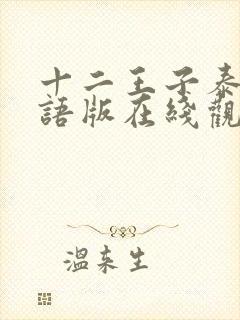 十二王子泰
語版在綫觀
溫來生